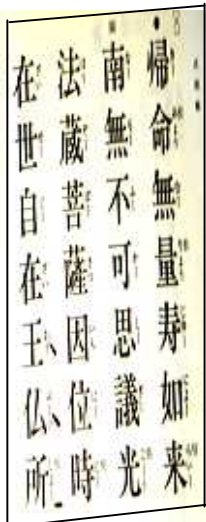 帰命無量寿如来
南無不可思議光
法蔵菩薩因位時
在世自在王仏所